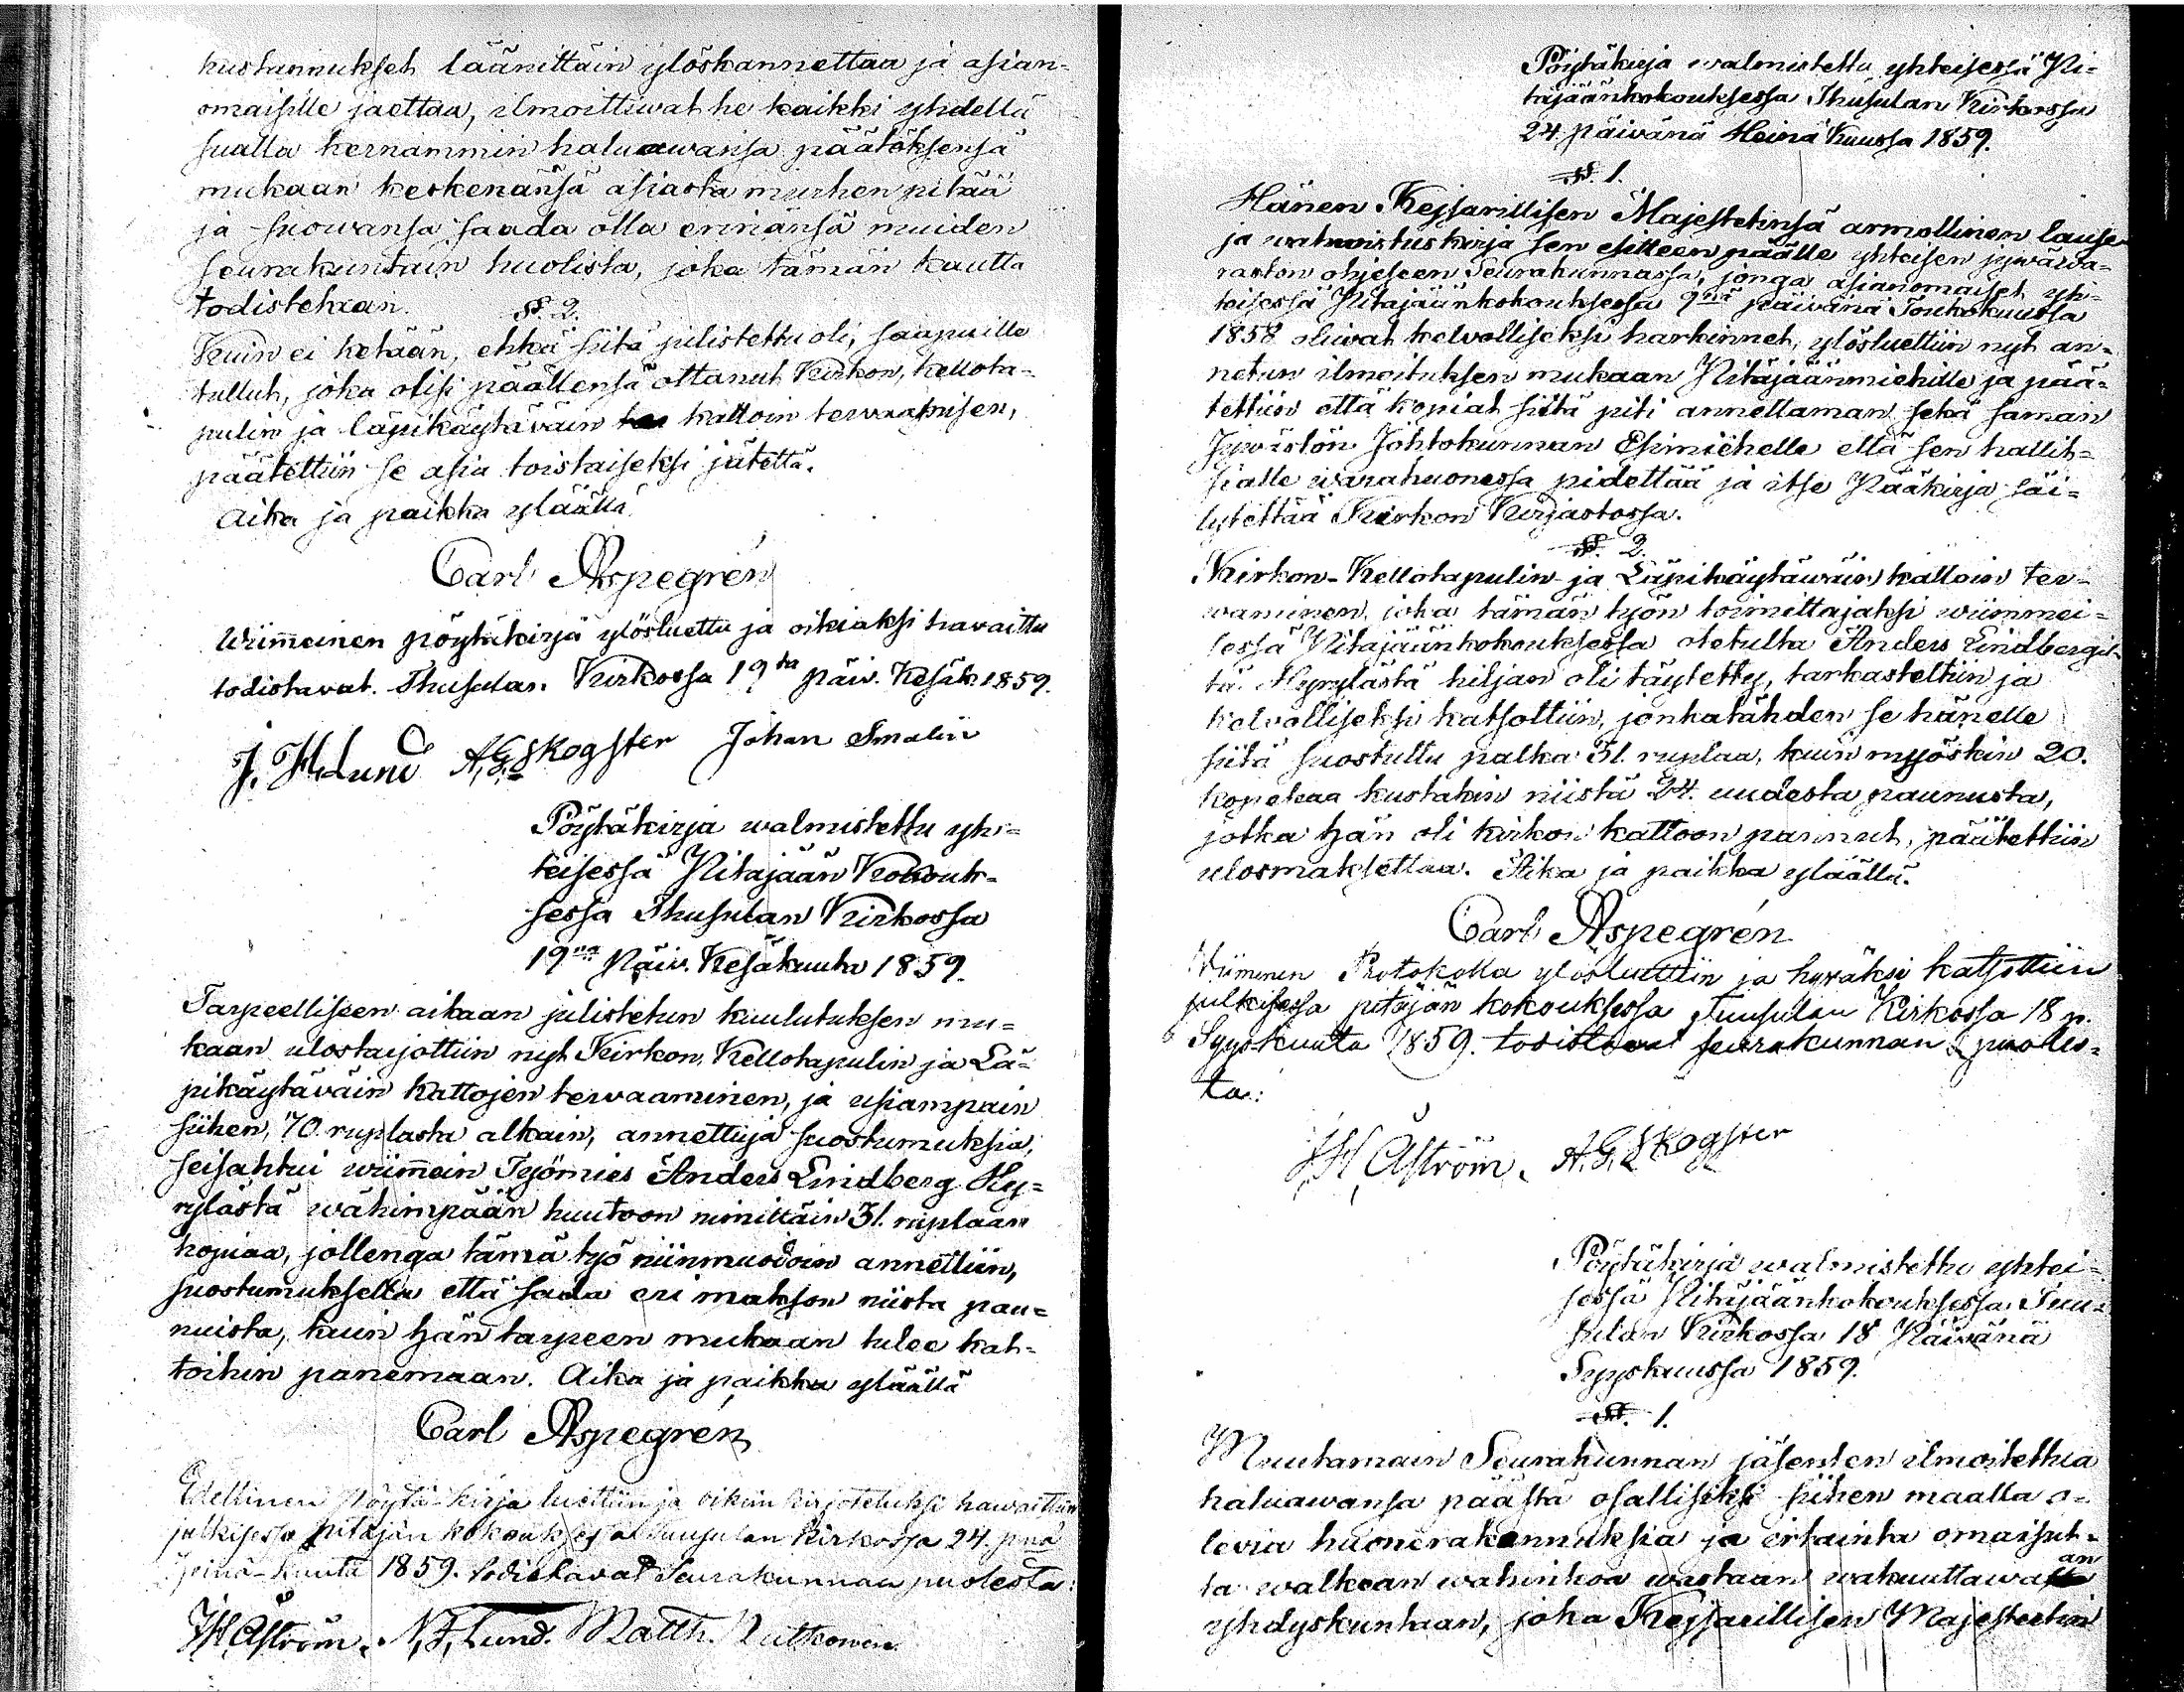 kustannukset läänittäin ylöskannettaa ja asian=
omaisille jaettaa, ilmoittiwat he kaikki yhdellä
sualla kernammin haluawansa päätöksensä
mukaan keskenänsä asiasta murhen pitää
ja suowansa saada olla erinänsä muiden
seurakuntain huolista, joka tämän kautta
todistetaan.
§. 2.
Kuin ei ketään, ehkä siitä julistettu oli, saapuille
tullut, joka olisi päällensä ottanut Kirkon, kellota=
pulin ja läpikäytäväin kattoin terwaamisen,
päätettiin se asia toistaiseksi jätettä.
Aika ja paikka ylläällä
Carl Aspegrén
Wiimeinen pöytäkirja ylösluettu ja oikiaksi havaittu
todistavat. Thusulan Kirkossa 19ta päiv. Kesäk. 1859.
J. H. Lund A. G. Skogster Johan Smalin
Pöytäkirja walmistettu yh=
teisessä Pitäjään Kokouk=
sessa Thusulan Kirkossa
19na Päiw. Kesäkuuta 1859.
Tarpeelliseen aikaan julistetun kuulutuksen mu=
kaan ulostarjottiin nyt Kirkon, Kellotapulin ja Lä=
pikäytäväin kattojen terwaaminen, ja usiampain
siihen, 70. ruplasta alkain, annettuja suostumuksia,
seisahtui wiimein Työmies Anders Lindberg Hy=
rylästä wähimpään huutoon nimittäin 31. ruplaan
hopiaa, jollenga tämä työ niinmuodoin annettiin,
suostumuksella että saada eri makson niista pau=
nuista, kuin hän tarpeen mukaan tulee kat=
toihin panemaan. Aika ja paikka ylläällä
Carl Aspegrén
Edellinen Pöytä-kirja luettiin ja oikiin kirjoteluksi hawaittiin
julkisessa pitäjän kokouksessa Tuusulan kirkossa 24. pnä
Heinä-kuuta 1859. todistavat Seurakunnan puolesta:
J H Åström. N. F. Lund. Matth. Nutkonen
Pöytäkirja walmistettu yhteisessä Pi=
täjäänkokouksessa Thusulan Kirkossa
24. päivänä Heinä Kuussa 1859.
§. 1.
Hänen Kejsarillisen Majestetinsä armollinen lause
ja wahwistuskirja sen esitteen päälle yhteisen jywäwa=
raston ohjeseen Seurakunnassa, jonga asianomaiset yh=
teisessä Pitäjäänkokouksessa 9nä päivänä Toukokuussa
1858 oliwat kelvolliseksi harkinnet, ylösluettiin nyt an=
netun ilmoituksen mukaan Pitäjäänmiehille ja pää=
tettiin että kopiat siitä piti annettaman sekä saman
Jywästön Johtokunnan Esimiehelle että sen hallit=
sialle warahuonessa pidettää ja itse Pääkirja säi=
lytettää Kirkon Kirjastossa.
§. 2.
Kirkon-Kellotapulin ja Läpikäytäwäin kattoin ter=
waminen, joka tämän työn toimittajaksi wiimmei=
sessä Pitäjäänkokouksessa otetulta Anders Lindbergil=
tä Hyrylästä hiljan oli täytetty, tarkasteltiin ja
kelvolliseksi katsottiin, jonkatähden se hänelle
siitä suostuttu palka 31. ruplaa, kuin myöskin 20.
kopekaa kustakin niistä 24. uudesta paunusta,
jotka hän oli kirkon kattoon pannut, päätettiin
ulosmaksettaa. Aika ja paikka ylläällä.
Carl Aspegrén
Wiimmen Protokolla ylösluettiin ja hyväksi katsottiin
julkisessa pitäjän kokouksessa Tuusulan Kirkossa 18 p.
Syyskuuta 1859. todistavat seurakunnan puoles=
ta:
J H Åström. A. G. Skogster
Pöytäkirja walmistettu yhtei=
sessä Pitäjäänkokouksessa Tuu=
sulan Kirkossa 18 Päivänä
Syyskuussa 1859.
§. 1.
Muutamain Seurakunnan jäsenten ilmoitettua
haluawansa päästä osalliseksi siihen maalla o=
levia huonerakennuksia ja irtainta omaisut=
ta walkean wahinkoa wastaan wakuuttawaan
yhdyskuntaan, joka Kejsarillisen Majestetin